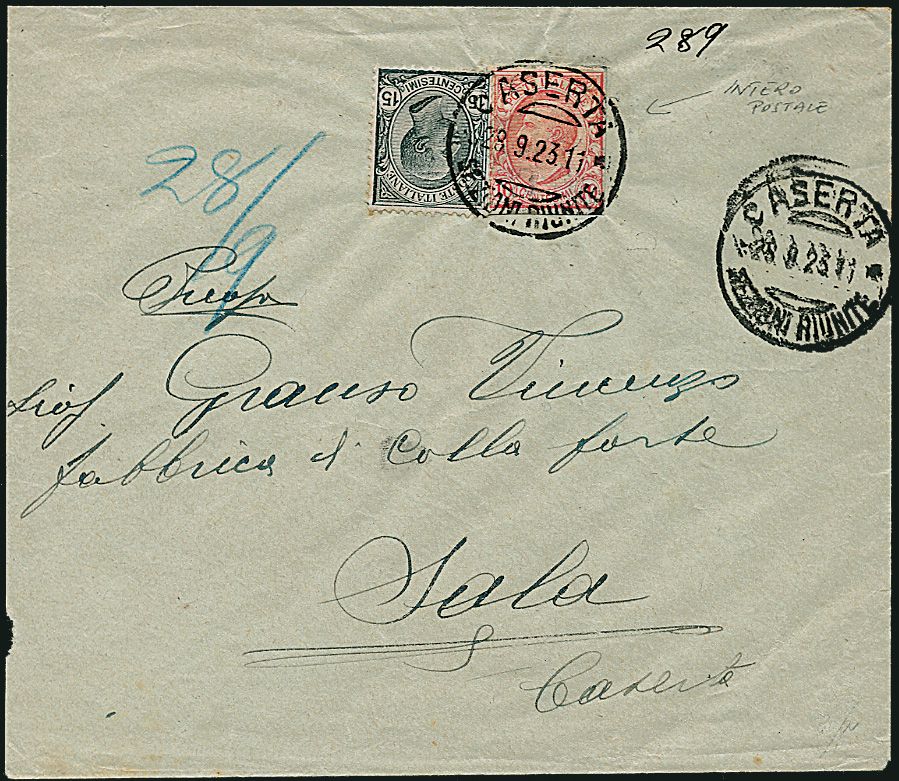 289
INTERO
POSTALE
15 CENTESIMI 15
POSTE ITALIANE
CASERTA
28.9.23.11
SEZIONI RIUNITE
CASERTA
28.9.23.11
SEZIONI RIUNITE
28/9
Grauso Vincenzo
fabbrica di Colla forte
Sala
Caserta